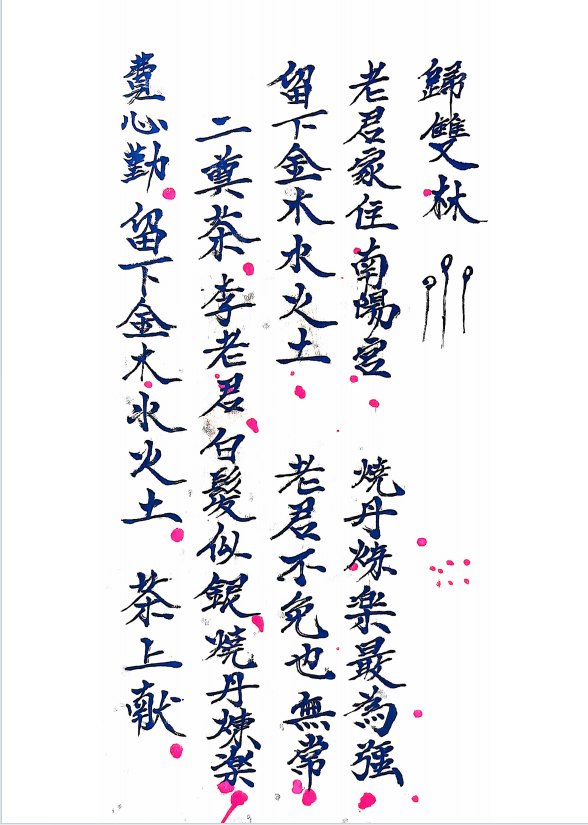 歸雙林
老君家住南陽宮 燒丹煉楽最為強
留下金木水火土 老君不免也無常
二奠茶李老君白髮似銀燒丹煉楽
費心勤留下金木水火土 茶上献